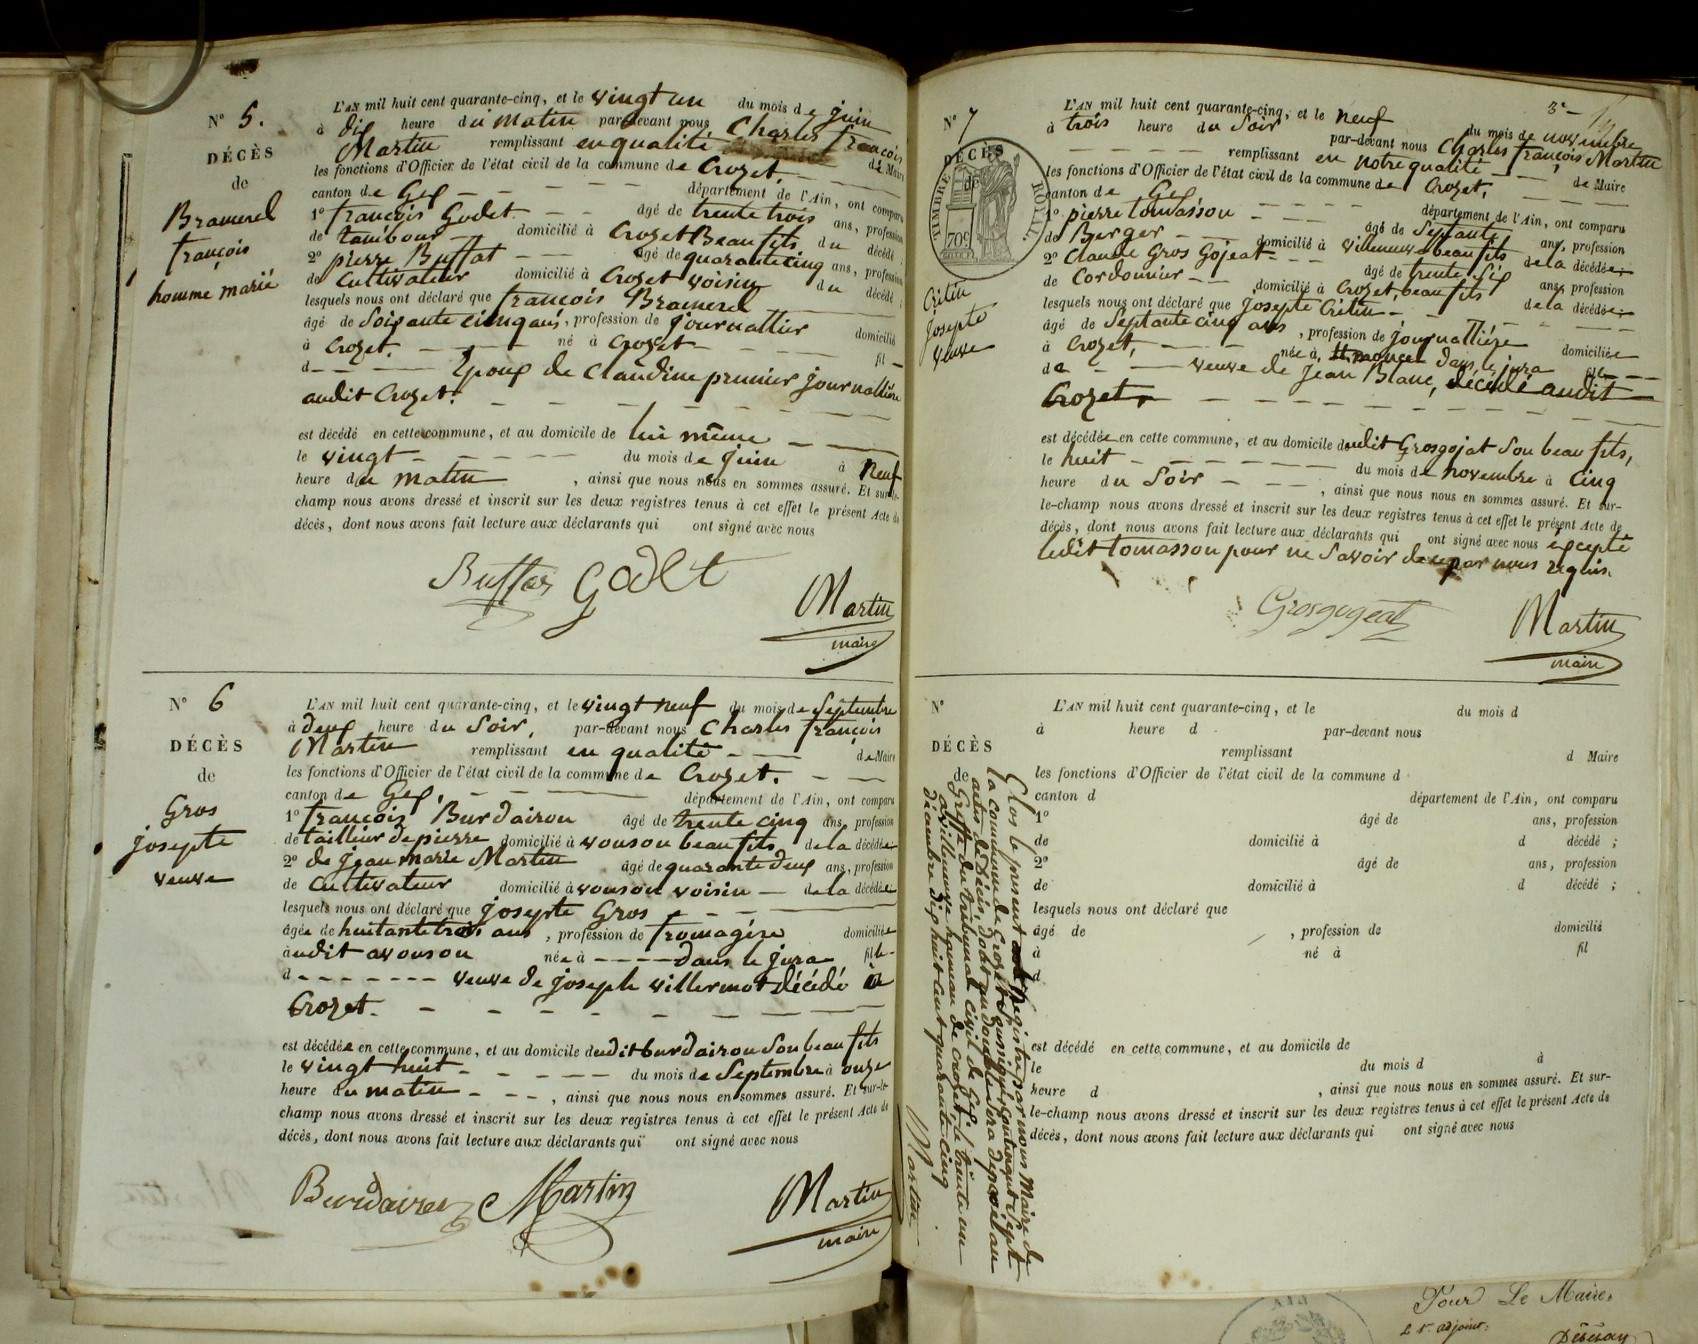 N° 5.
DÉCÈS
de
Bramerel
françois
homme marié
L'AN mil huit cent quarante-cinq, et le vingt un du mois de juin
à dix heure du matin par-devant nous Charles françois
Martin remplissant en qualité de Maire
les fonctions d'Officier de l'état civil de la commune de Crozet.
canton de Gex département de l'Ain, ont comparu
1° françois Godet âgé de trente trois ans, profession
de tambour domicilié à Crozet Beau fils du décédé
2° pierre Buffat âgé de quarante cinq ans, profession
de Cultivateur domicilié à Crozet voisin du décédé ;
lesquels nous ont déclaré que françois Bramerel
âgé de Soixante cinq ans, profession de journallier domicilié
à Crozet. né à Crozet fil
d Epoux de Claudine prunier journallière
audit Crozet.
est décédé en cette commune, et au domicile de lui même
le vingt du mois de juin à neuf
heure du matin, ainsi que nous nous en sommes assuré. Et sur-le-
champ nous avons dressé et inscrit sur les deux registres tenus à cet effet le présent Acte de
décès, dont nous avons fait lecture aux déclarants qui ont signé avec nous
Buffat Godet
Martin
maire
N° 6
DÉCÈS
de
Gros
josepte
veuve
L'AN mil huit cent quarante-cinq, et le vingt neuf du mois de Septembre
à deux heure du Soir, par-devant nous Charles françois
Martin remplissant en qualité de Maire
les fonctions d'Officier de l'état civil de la commune de Crozet.
canton de Gex, département de l'Ain, ont comparu
1° françois Burdairon âgé de trente cinq ans, profession
de tailleur de pierre domicilié à vouson beau fils de la décédée
2° de jean marie Martin âgé de quarante deux ans, profession
de Cultivateur domicilié à vouson voisin de la décédée
lesquels nous ont déclaré que josepte Gros
âgée de huitante trois ans, profession de fromagère domiciliée
audit avouson née à dans le jura fille
d veuve de joseph villermot décédé à
Crozet.
est décédée en cette commune, et au domicile dudit burdairon Son beau fils
le vingt huit du mois de Septembre à onze
heure du matin, ainsi que nous nous en sommes assuré. Et sur-le-
champ nous avons dressé et inscrit sur les deux registres tenus à cet effet le présent Acte de
décès, dont nous avons fait lecture aux déclarants qui ont signé avec nous
Burdairon Martin
Martin
maire
N° 7
DÉCÈS
de
TIMBRE ROYAL
70c
Critin
josepte
veuve
L'AN mil huit cent quarante-cinq, et le neuf du mois de novembre
à trois heure du Soir par-devant nous Charles françois Martin
remplissant en notre qualité de Maire
les fonctions d'Officier de l'état civil de la commune de Crozet,
canton de Gex département de l'Ain, ont comparu
1° pierre tomasson âgé de Septante ans, profession
de Berger domicilié à villeneuve beau fils de la décédée ;
2° Claude Gros Gojeat âgé de trente Six ans, profession
de Cordonnier domicilié à Crozet, beau fils de la décédée ;
lesquels nous ont déclaré que josepte Critin
âgé de Septante cinq ans, profession de journallière domiciliée
à Crozet, née à, dans le jura fille
de veuve de jean Blanc, décédé audit
Crozet,
est décédée en cette commune, et au domicile dudit Grosgojat Son beau fils,
le huit du mois de novembre à cinq
heure du Soir, ainsi que nous nous en sommes assuré. Et sur-
le-champ nous avons dressé et inscrit sur les deux registres tenus à cet effet le présent Acte de
décès, dont nous avons fait lecture aux déclarants qui ont signé avec nous éxcepté
ledit tomasson pour ne Savoir de ce par nous requis.
Grosgogeat
Martin
maire
N°
DÉCÈS
de
L'AN mil huit cent quarante-cinq, et le du mois d
à heure d par-devant nous
remplissant d Maire
les fonctions d'Officier de l'état civil de la commune d
canton d département de l'Ain, ont comparu
1° âgé de ans, profession
de domicilié à d décédé ;
2° âgé de ans, profession
de domicilié à d décédé ;
lesquels nous ont déclaré que
âgé de , profession de domicilié
à né à fil
d
est décédé en cette commune, et au domicile de
le du mois d à
heure d , ainsi que nous nous en sommes assuré. Et sur-
le-champ nous avons dressé et inscrit sur les deux registres tenus à cet effet le présent Acte de
décès, dont nous avons fait lecture aux déclarants qui ont signé avec nous
Clos le présent Registre par nous Maire de
la commune de Crozet Soussigné, Contenant Sept
actes de Décès, dont un double Sera déposé au
Greffe du tribunal civil de Gex,
a villeneuve hameau de crozet, le trente un
décembre dix huit cent quarante cinq
Martin
AIN
Pour Le Maire,